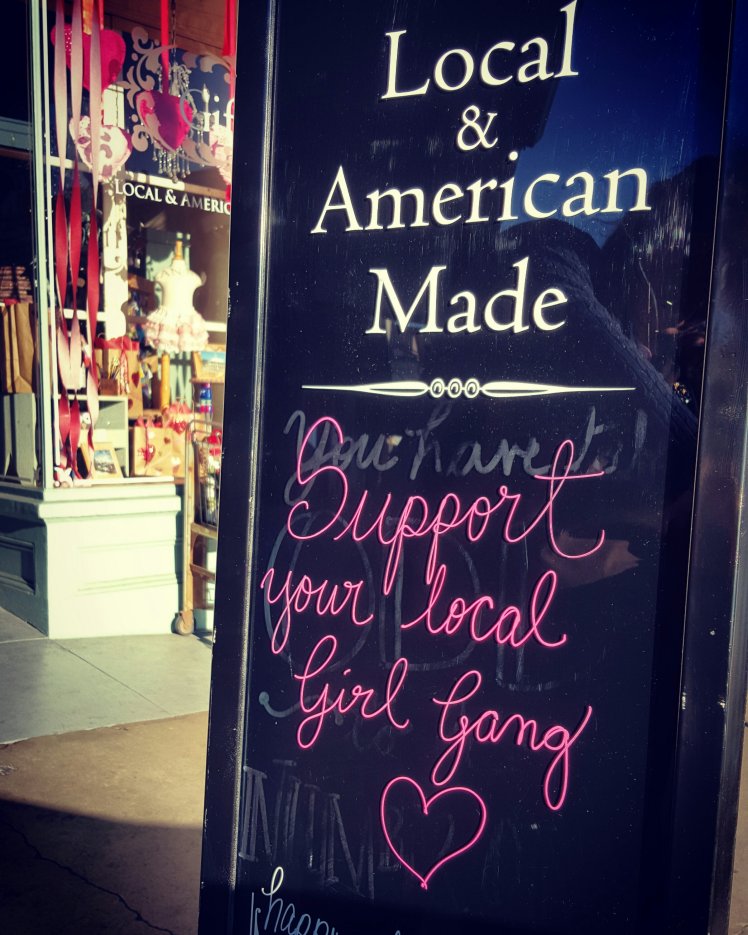 Local
&
American
Made
You have to
Support
your local
Girl Gang
happy
LOCAL & AMERIC